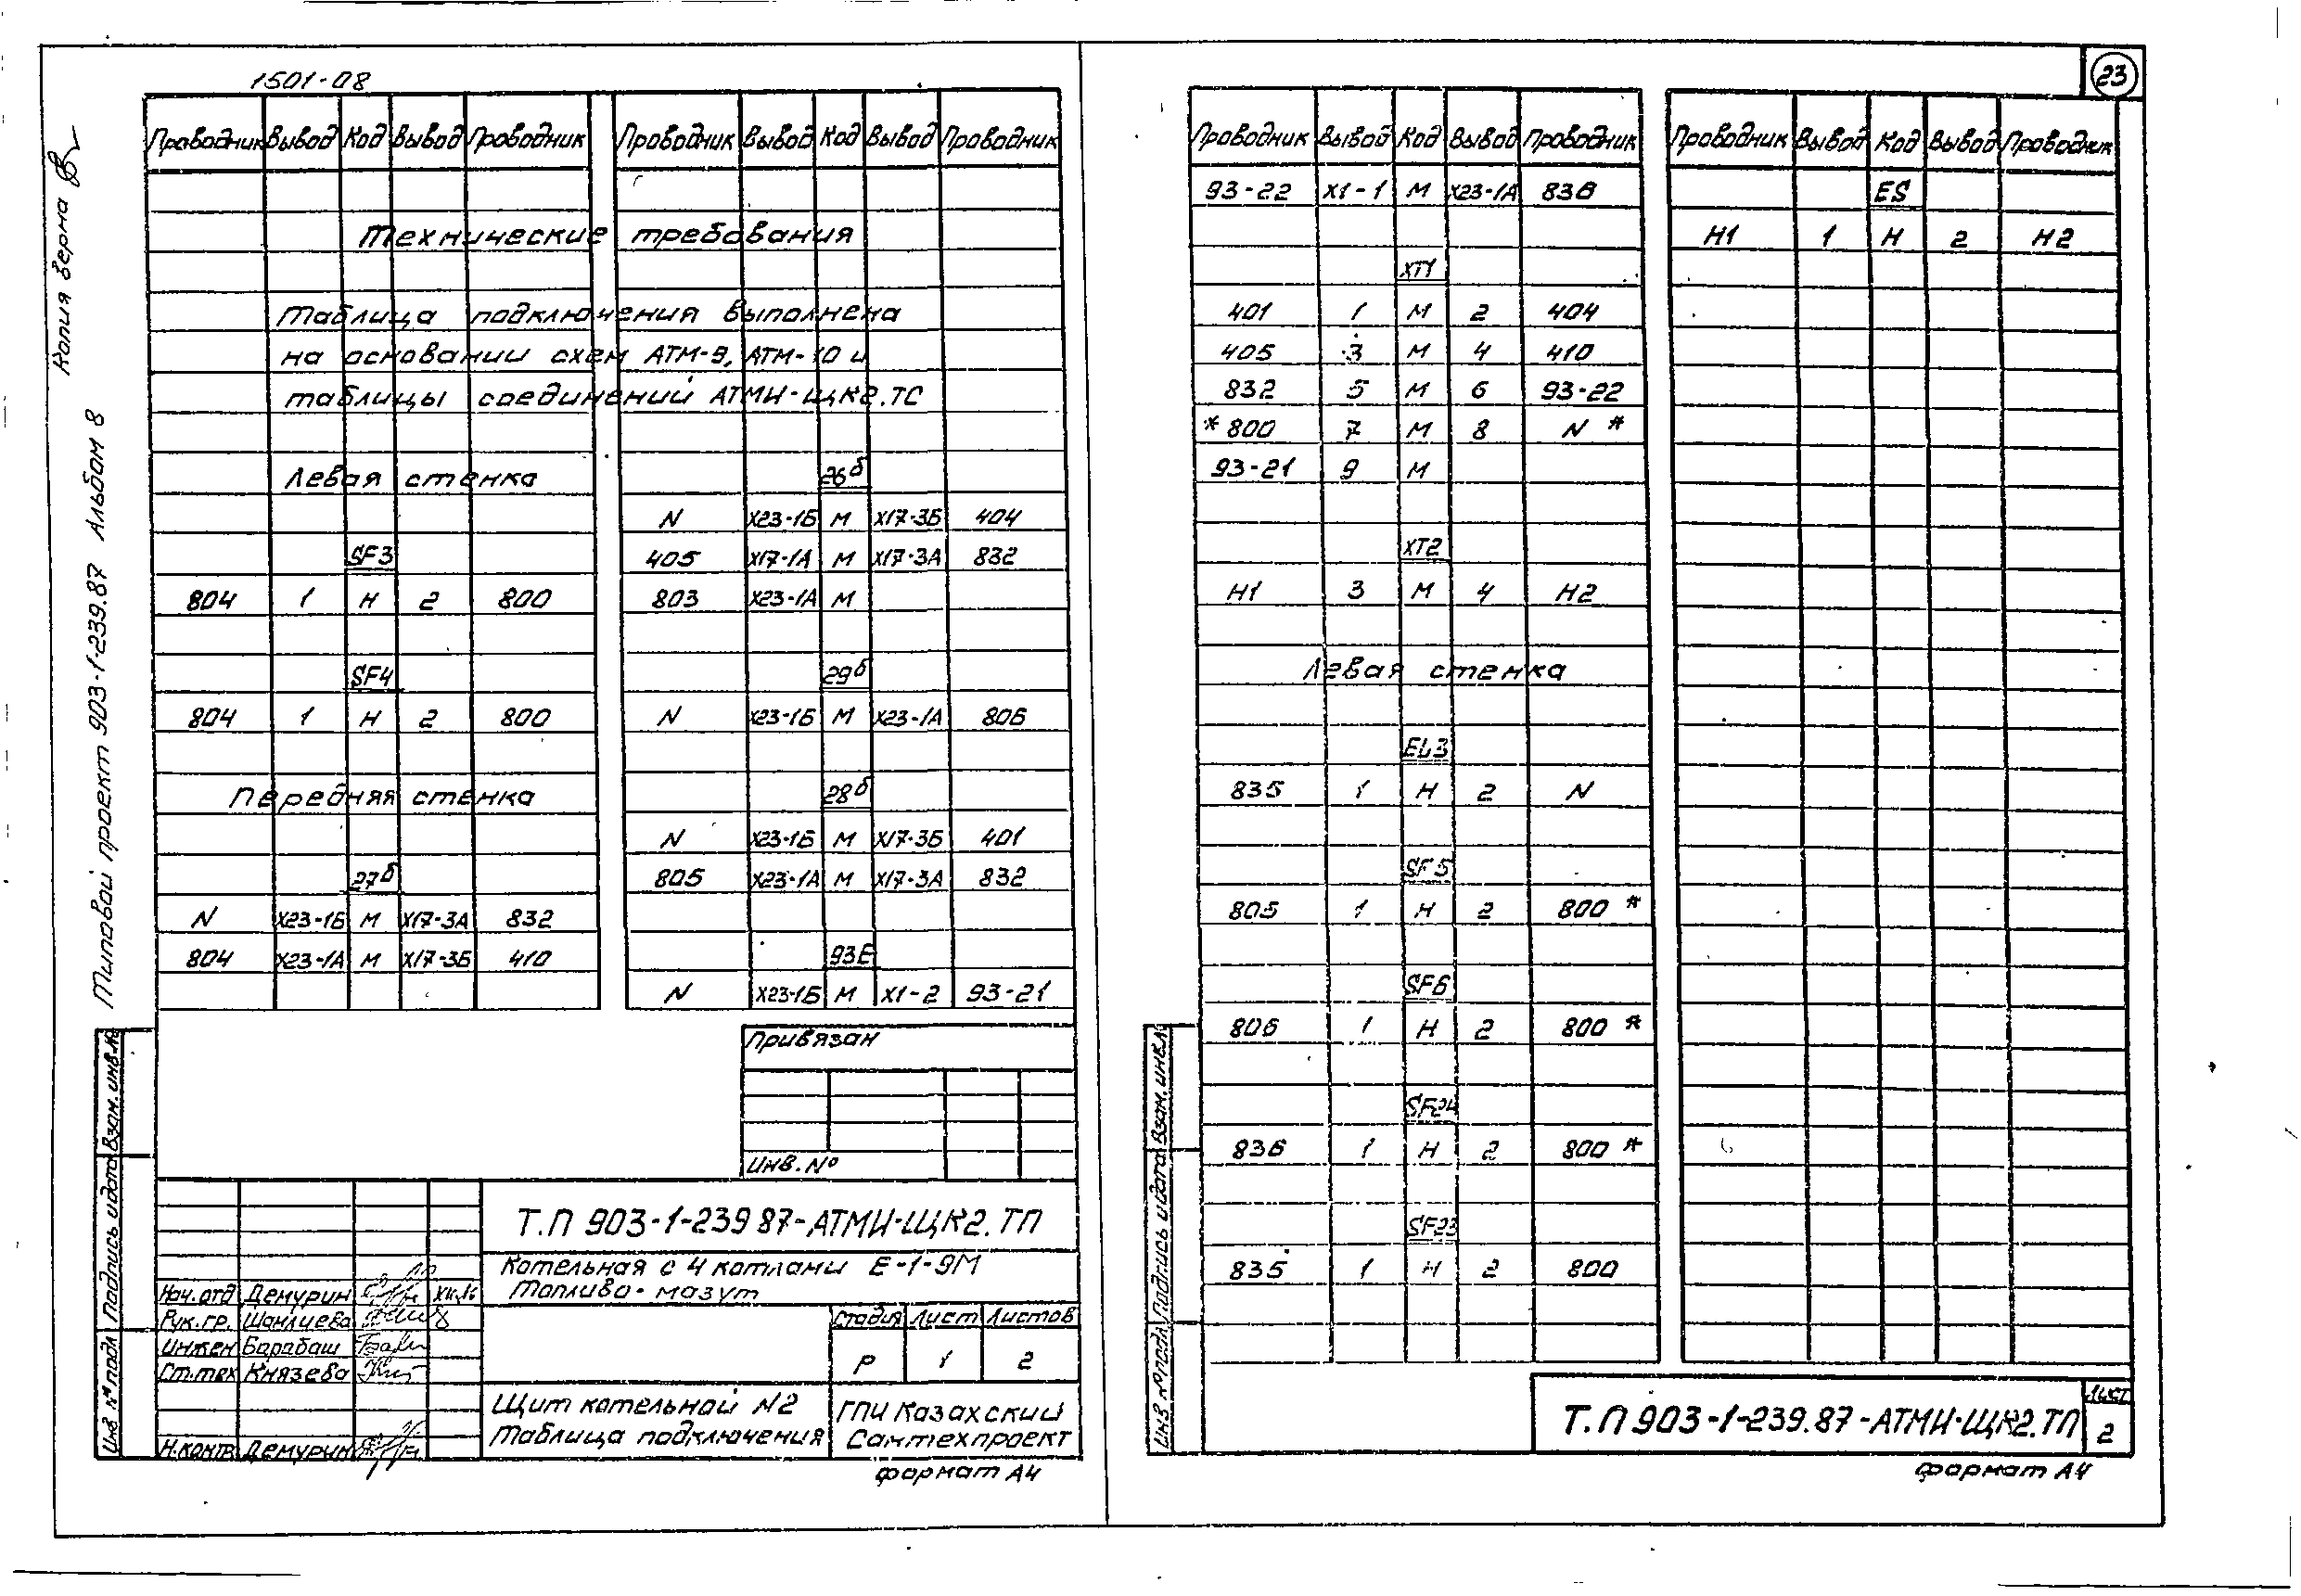 1501-08
23
Копия верна
Типовой проект 903-1-239.87 Альбом 8
Проводник Вывод Код Вывод Проводник
Технические требования
Таблица подключения выполнена
на основании схем АТМ-9, АТМ-10 и
таблицы соединений АТМИ-ЩК2.ТС
Левая стенка
SF3
804 1 Н 2 800
SF4
804 1 Н 2 800
Передняя стенка
27б
N Х23-1Б М Х17-3А 832
804 Х23-1А М Х17-3Б 410
Проводник Вывод Код Вывод Проводник
26б
N Х23-1Б М Х17-3Б 404
405 Х17-1А М Х17-3А 832
803 Х23-1А М
29б
N Х23-1Б М Х23-1А 806
28б
N Х23-1Б М Х17-3Б 401
805 Х23-1А М Х17-3А 832
93Е
N Х23-1Б М Х1-2 93-21
Привязан
Инв. №
Т.П 903-1-239 87-АТМИ-ЩК2. ТП
Котельная с 4 котлами Е-1-9М
Топливо-мазут
Нач.отд Демурин
Рук.гр. Шанлиева
Инжен Барабаш
Ст.тех Князева
Н.контр Демурин
Стадия Лист Листов
Р 1 2
Щит котельной N2
Таблица подключения
ГПИ Казахский
Сантехпроект
формат А4
Инв № подл Подпись и дата Взам. инв.№
Проводник Вывод Код Вывод Проводник
93-22 Х1-1 М Х23-1А 836
ХТ1
401 1 М 2 404
405 3 М 4 410
832 5 М 6 93-22
*800 7 М 8 N *
93-21 9 М
ХТ2
Н1 3 М 4 Н2
Левая стенка
EL3
835 1 Н 2 N
SF5
805 1 Н 2 800 *
SF6
806 1 Н 2 800 *
SF24
836 1 Н 2 800 *
SF23
835 1 Н 2 800
Проводник Вывод Код Вывод Проводник
ES
Н1 1 Н 2 Н2
Инв № подл Подпись и дата Взам. инв.№
Т.П 903-1-239.87-АТМИ-ЩК2.ТП
Лист
2
формат А4